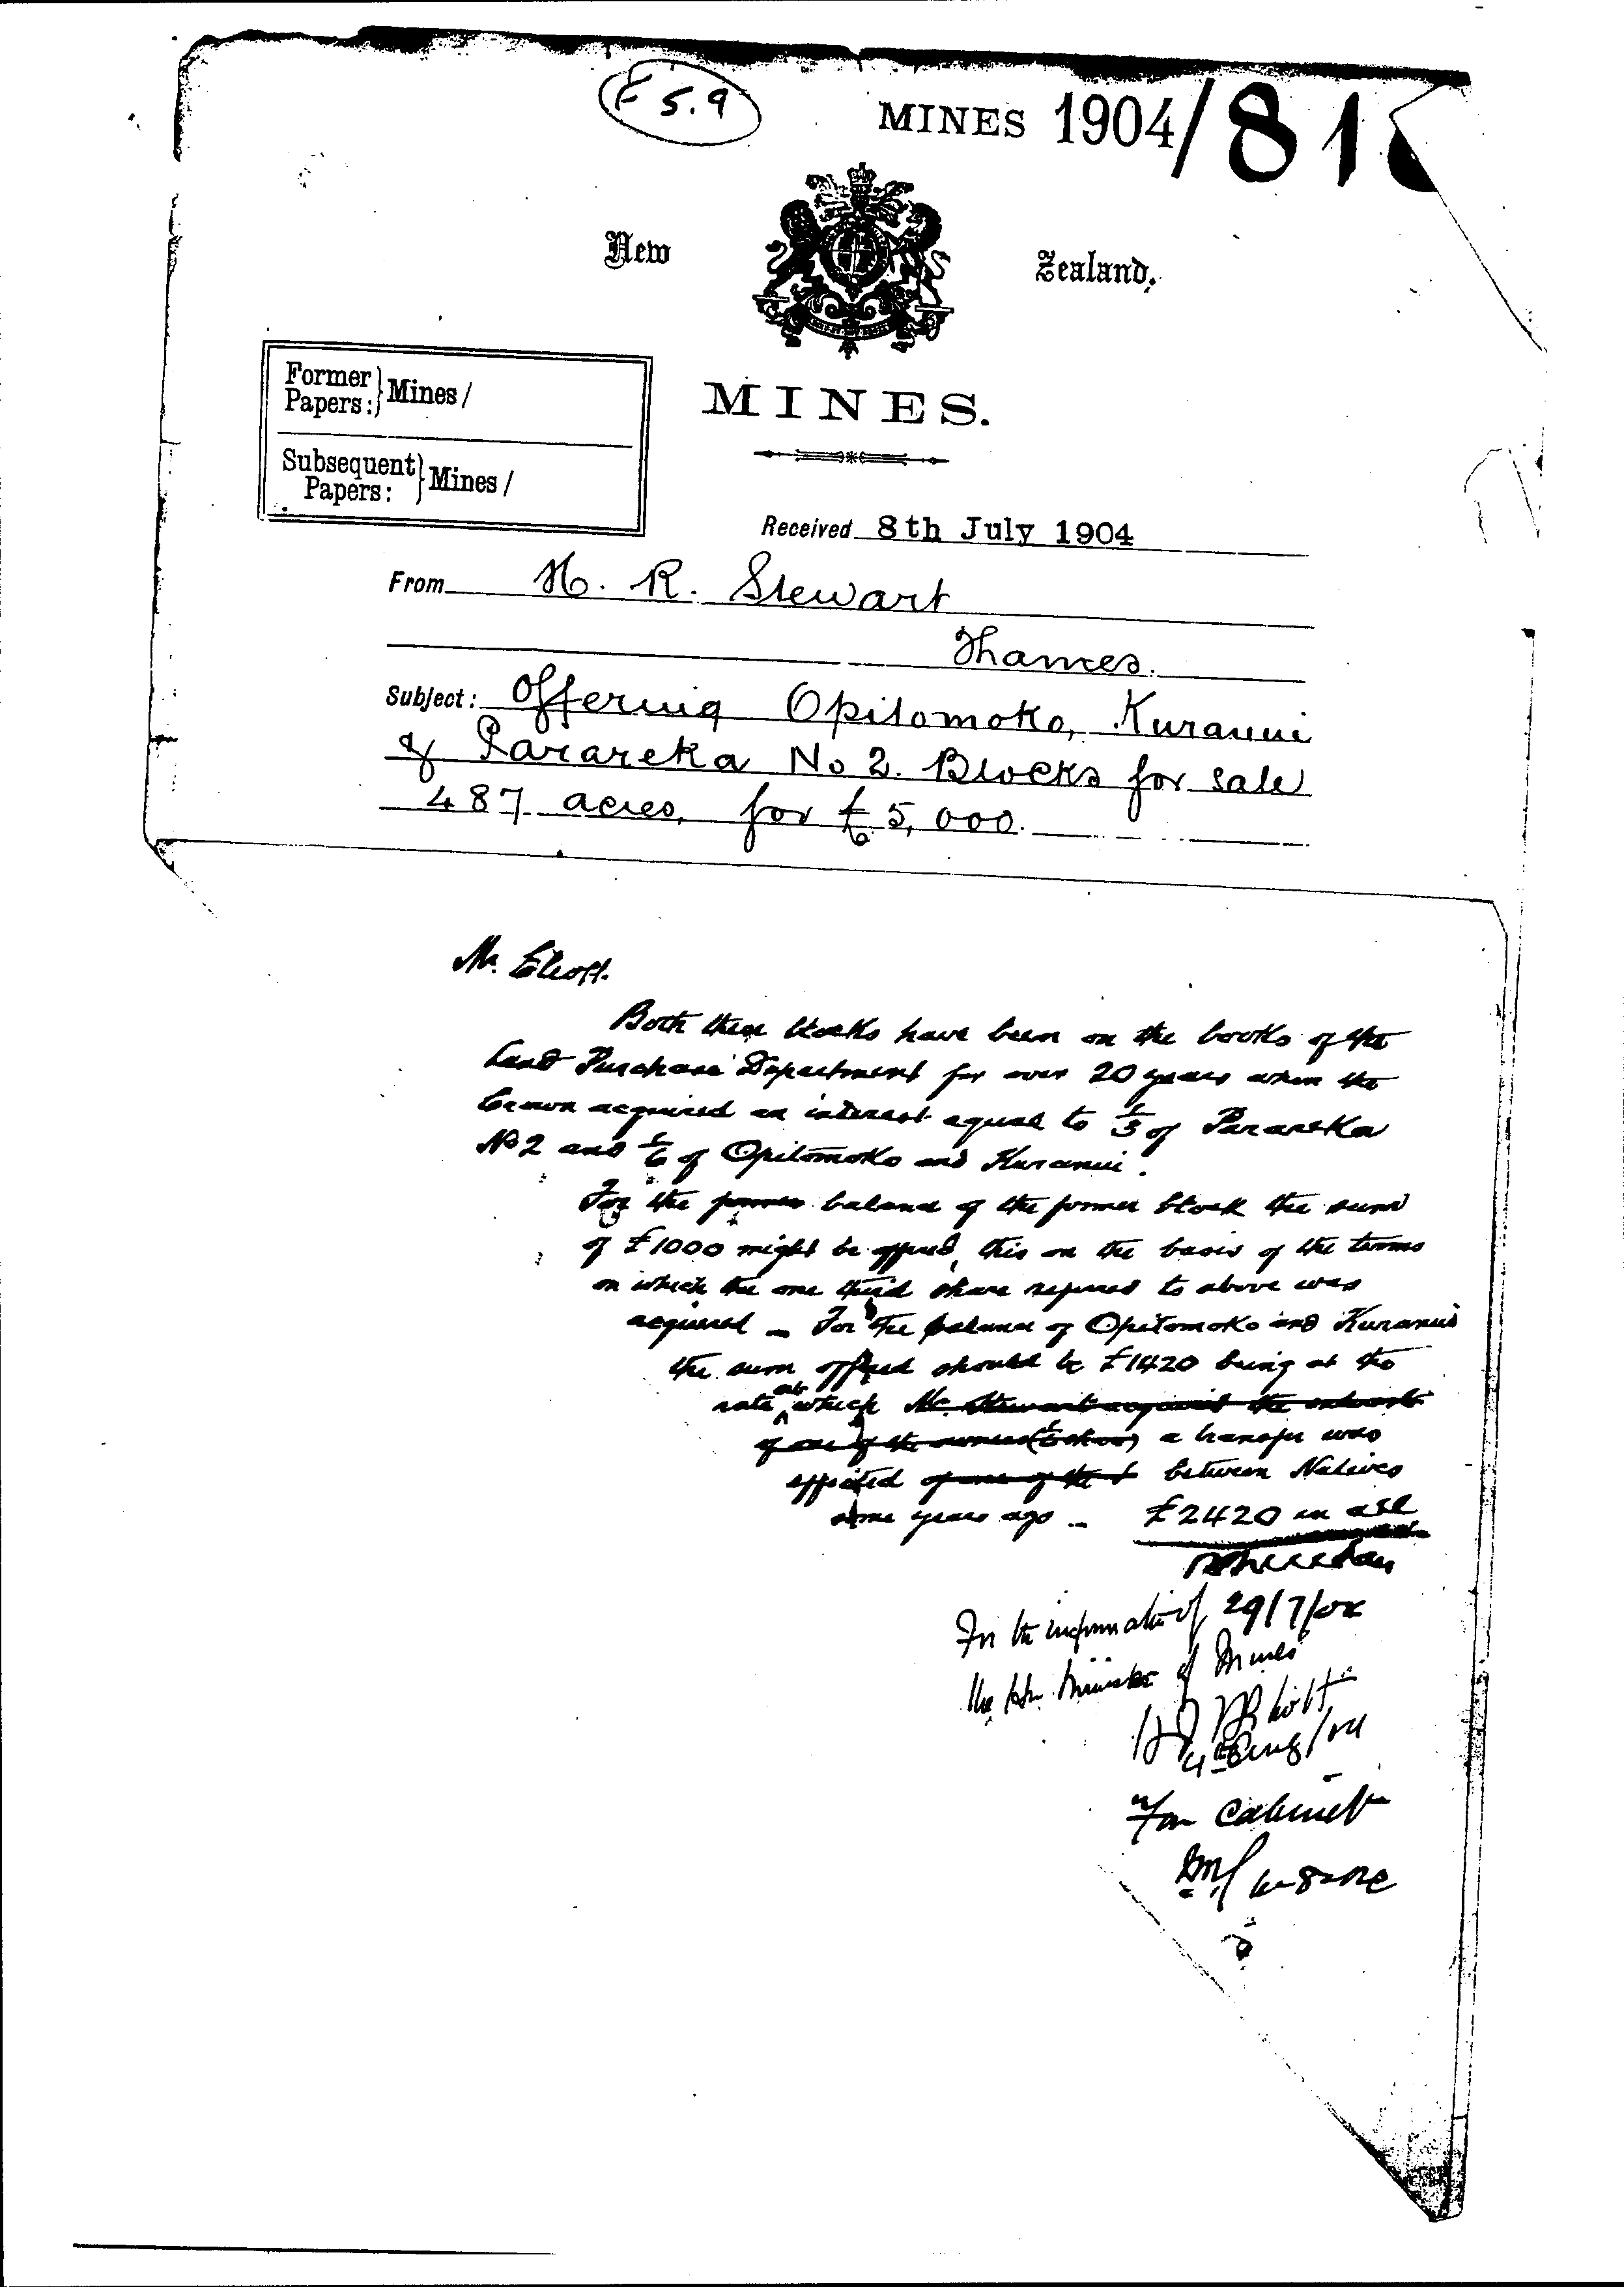 E 5.9
MINES 1904/81
New Zealand.
Former Papers: } Mines /
Subsequent Papers: } Mines /
MINES.
Received 8th July 1904
From H. R. Stewart
Thames.
Subject: Offering Opitomoko, Kuranui
& Parareka No 2. Blocks for sale
487 acres, for £5,000.
Mr. Eliott.
Both these blocks have been on the books of the
Land Purchase Department for over 20 years when the
Crown acquired an interest equal to 1/3 of Parareka
No 2 and 1/6 of Opitomoko and Kuranui.
For the former balance of the former block the sum
of £1000 might be offered, this on the basis of the terms
on which the one third share referred to above was
acquired – For the balance of Opitomoko and Kuranui
the sum offered should be £1420 being at the
rate at which Mr. Stewart acquired the interests
of one of the owners (1/6 share) a transfer was
effected of one of the between Natives
some years ago – £2420 in all
29/7/04
For the information of
the Hon. Minister of Mines
H J H Eliott
4th Aug/04
For Cabinet